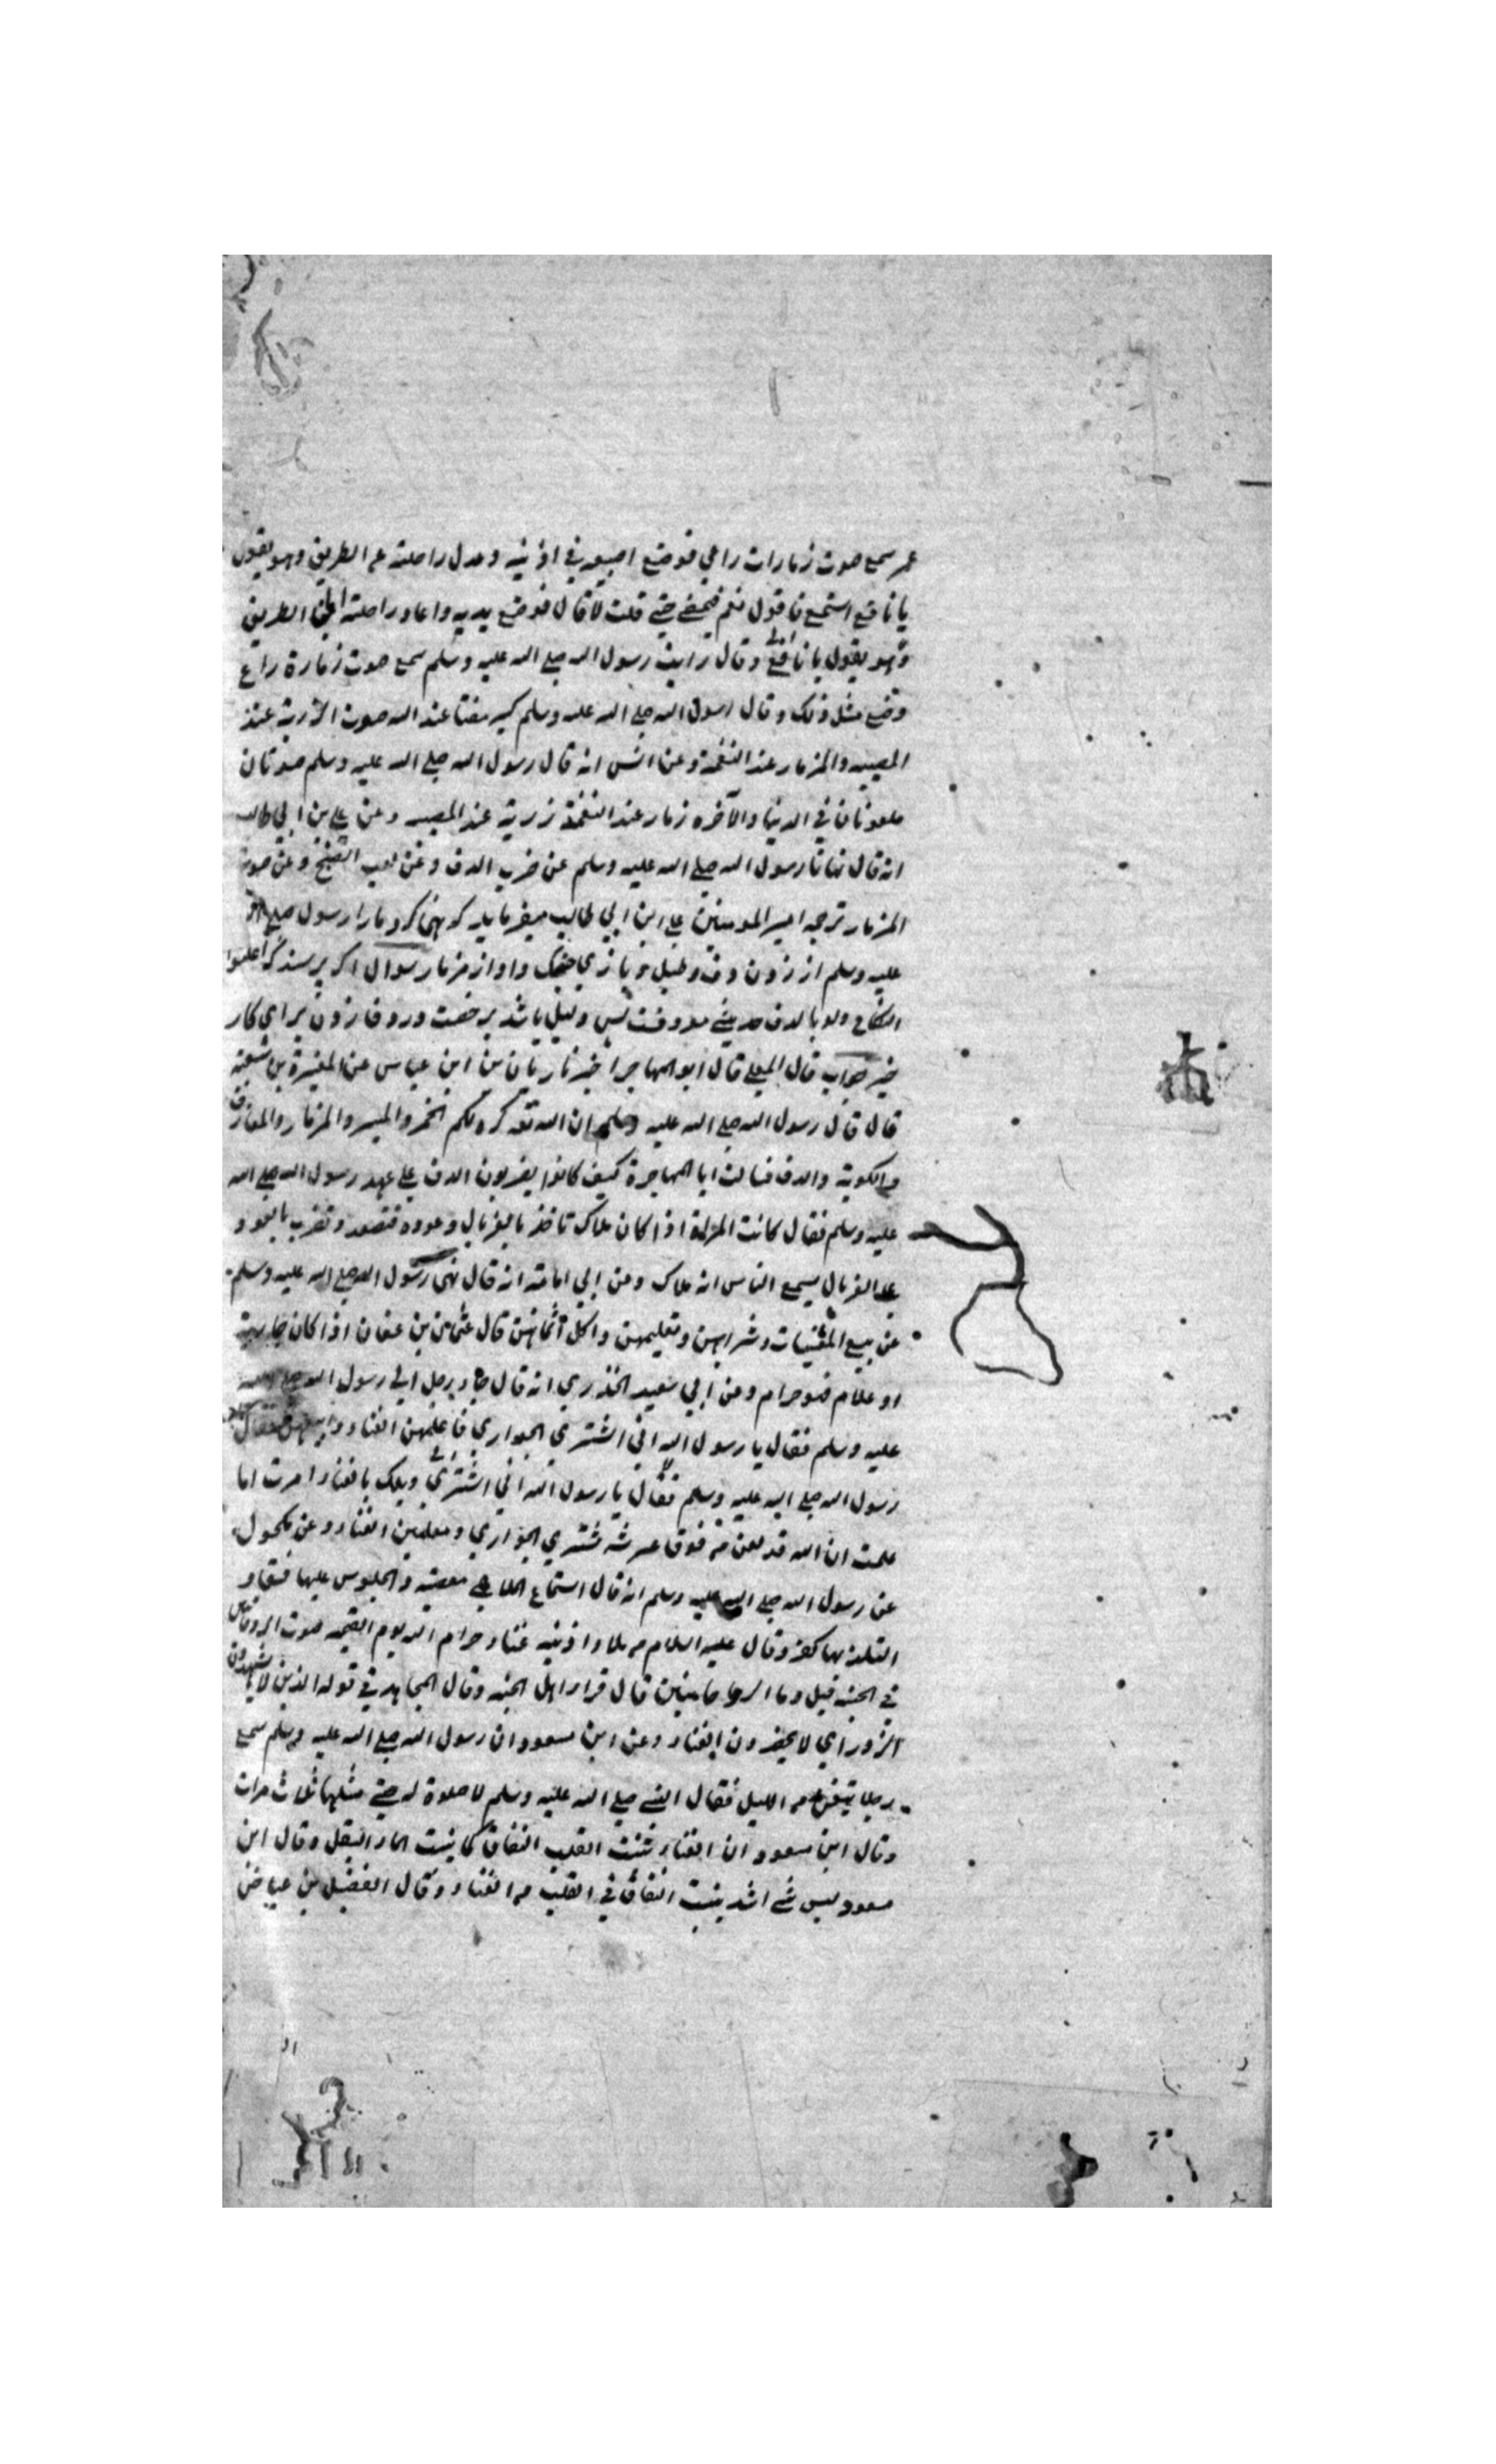 عمر سمع صوت زمارات راعي فوضع اصبعيه في اذنيه وعدل راحلته عن الطريق وهو يقول
يا نافع استمع فاقول نعم فيمضي حتى قلت لا قال فوضع يديه واعاد راحلته الى الطريق
وهو يقول يا نافع وقال رايت رسول الله صلى الله عليه وسلم سمع صوت زمارة راع
وضع مثل ذلك وقال رسول الله صلى الله عليه وسلم مقتا عند الله صوت عند
المصيبه والمزمار عند النغمة وعن انس انه قال رسول الله صلى الله عليه وسلم صوتان
ملعونان في الدنيا والآخره زمار عند النغمة عند المصيبه وعن علي بن ابي طالب
انه قال نهانا رسول الله صلى الله عليه وسلم عن ضرب الدف وعن لعب الصنج وعن صوت
المزمار ترجمه امير المومنين علي ابن ابي طالب ميفرمايد كه نهى كرد مارا رسول صلى الله
عليه وسلم از زدن دف وطبل و بازي چنك واواز مزمار سوال اكر پرسند كه اعلنوا
النكاح ولو بالدف حديثي معروفست پس دليل باشد بر رخصت ورود فا زدن براي كار
خير جواب قال المعلى قال ابو المهاجر اخبرنا بن ابن عباس عن المغيرة بن شعبة
قال قال رسول الله صلى الله عليه وسلم ان الله تعه كره لكم الخمر والميسر والمزمار والمعازف
والكوبة والدف فسالت ابا المهاجرة كيف كانوا يضربون الدف على عهد رسول الله صلى الله
عليه وسلم فقال كانت المراة اذا كان ملاك تاخذ بالغربال وعوده فتصعد وتضرب بالعود
على الغربال يسمع الناس انه ملاك وعن ابي امامة انه قال نهى رسول الله صلى الله عليه وسلم
عن بيع المغنيات وشرايهن وتعليمهن واكل اثمانهن قال عثمان بن عفان اذا كان جارية
او غلام فهو حرام وعن ابي سعيد الخدري انه قال جاء برجل الى رسول الله صلى الله
عليه وسلم فقال يا رسول الله اني اشتري الجواري فاعلمهن الغناء فقال
رسول الله صلى الله عليه وسلم فقال يا رسول الله اني اشتري ويلك بالغناء امرت اما
علمت ان الله قد لعن من فوق عرشه مشتري الجواري ومعلمين الغناء وعن مكحول
عن رسول الله صلى الله عليه وسلم انه قال استماع الملاهي معصية والجلوس عليها فسقا و
التلذذ بها كفر وقال عليه السلام من ملاء اذنيه غناء حرام الله يوم القيمه صوت
في الجنه قيل وما قال قراء اهل الجنه وقال المجاهد في قوله الذين لا يشهدون
الزور اي لا يحضرون الغناء وعن ابن مسعود ان رسول الله صلى الله عليه وسلم سمع
رجلا يتغنى من الليل فقال النبي صلى الله عليه وسلم لا صلوة له حتى مثلها ثلاث مرات
وقال ابن مسعود ان الغناء ينبت القلب النفاق كما ينبت الماء البقل وقال ابن
مسعود ليس شي اشد ينبت النفاق في القلب من الغناء وقال الفضيل بن عياض